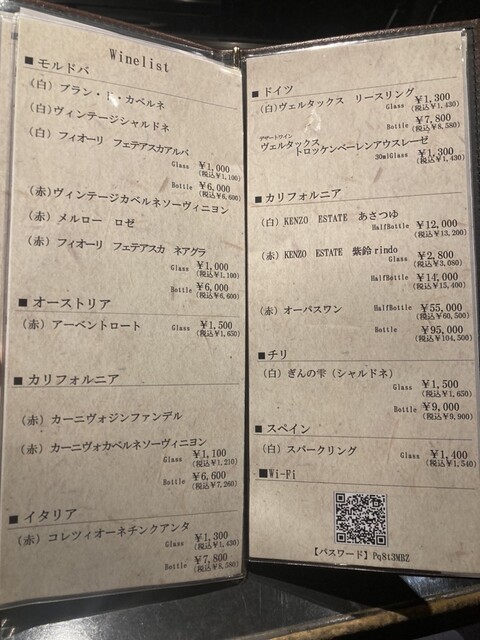 Winelist
■モルドバ
(白) ブラン・ド・カベルネ
(白)ヴィンテージシャルドネ
(白) フィオーリ フェテアスカアルバ
Glass ¥1,000
(税込¥1,100)
Bottle ¥6,000
(税込¥6,600)
(赤)ヴィンテージカベルネソーヴィニヨン
(赤) メルロー ロゼ
(赤) フィオーリ フェテアスカ ネアグラ
Glass ¥1,000
(税込¥1,100)
Bottle ¥6,000
(税込¥6,600)
■オーストリア
(赤) アーベントロート Glass ¥1,500
(税込¥1,650)
■カリフォルニア
(赤) カーニヴォジンファンデル
(赤) カーニヴォカベルネソーヴィニヨン
Glass ¥1,100
(税込¥1,210)
Bottle ¥6,600
(税込¥7,260)
■イタリア
(赤) コレツィオーネチンクアンタ
Glass ¥1,300
(税込¥1,430)
Bottle ¥7,800
(税込¥8,580)
■ドイツ
(白)ヴェルタックス リースリング
Glass ¥1,300
(税込¥1,430)
Bottle ¥7,800
(税込¥8,580)
デザートワイン
ヴェルタックス
トロッケンベーレンアウスレーゼ
30mlGlass ¥1,300
(税込¥1,430)
■カリフォルニア
(白) KENZO ESTATE あさつゆ
HalfBottle ¥12,000
(税込¥13,200)
(赤) KENZO ESTATE 紫鈴rindo
Glass ¥2,800
(税込¥3,080)
HalfBottle ¥14,000
(税込¥15,400)
(赤) オーパスワン HalfBottle ¥55,000
(税込¥60,500)
Bottle ¥95,000
(税込¥104,500)
■チリ
(白) ぎんの雫 (シャルドネ)
Glass ¥1,500
(税込¥1,650)
Bottle ¥9,000
(税込¥9,900)
■スペイン
(白) スパークリング Glass ¥1,400
(税込¥1,540)
■Wi-Fi
【パスワード】Pq8t3MBZ